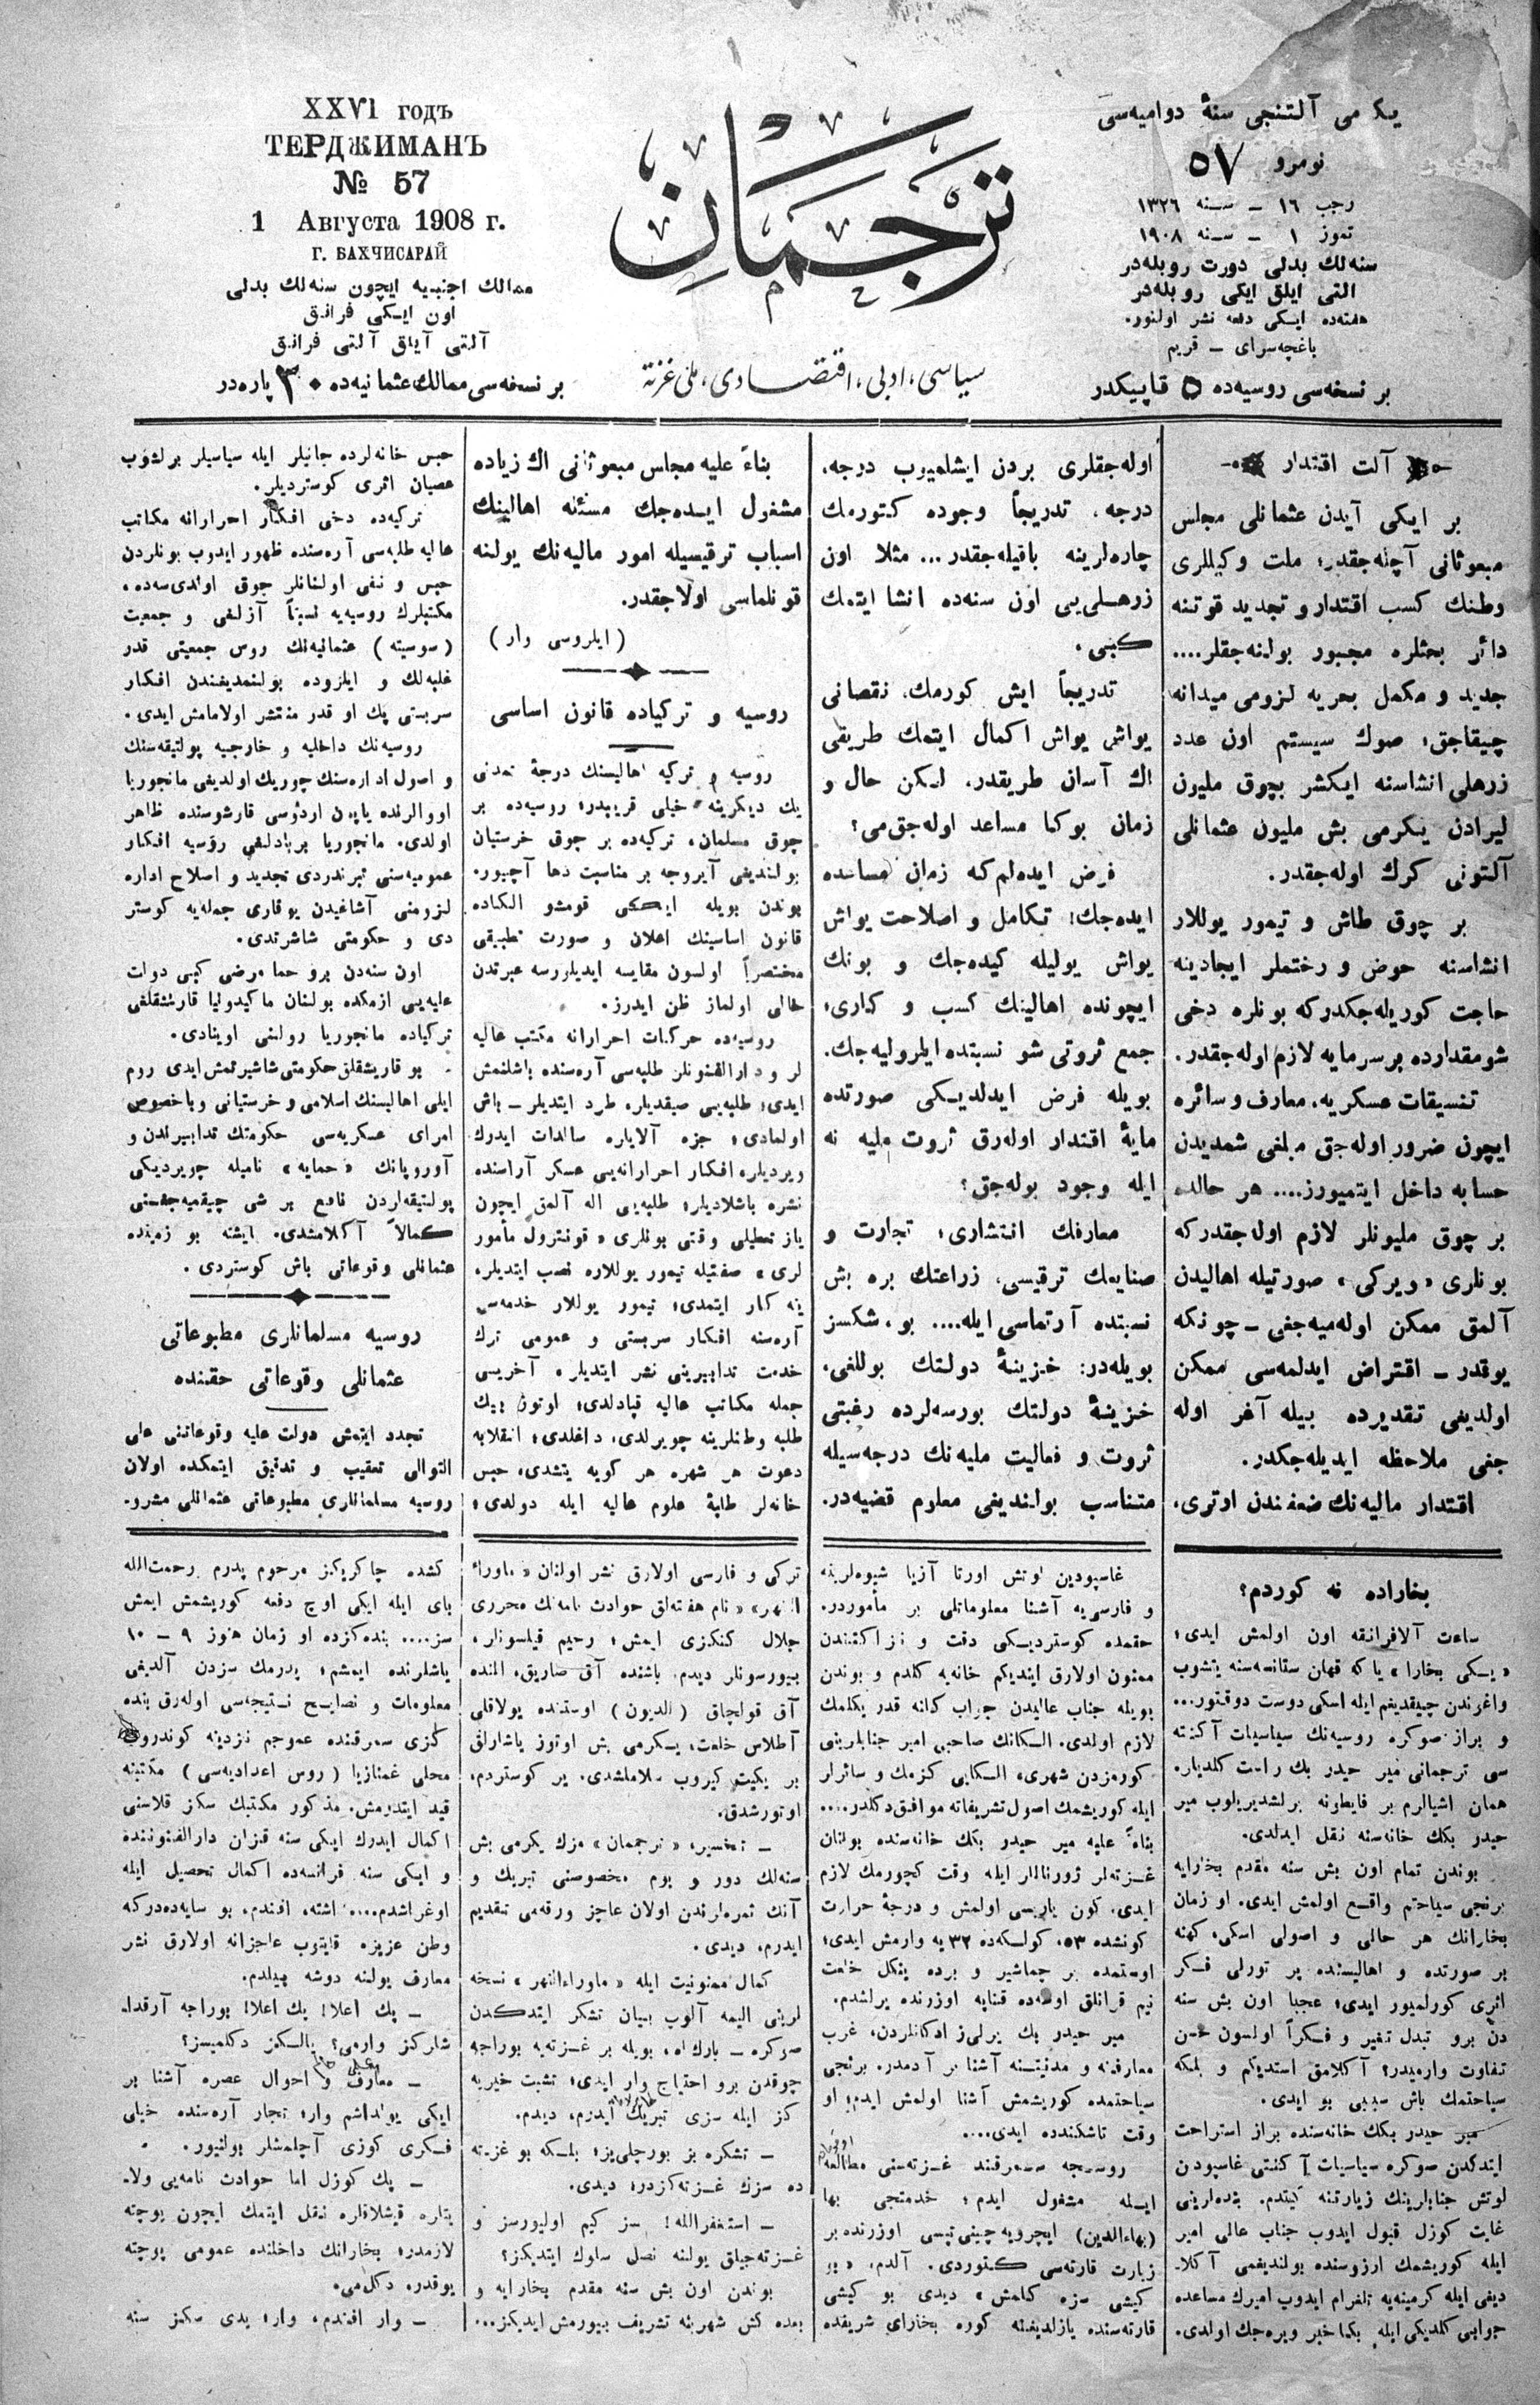 XXVI годъ
ТЕРДЖИМАНЪ
№ 57
1 Августа 1908 г.
Г. БАХЧИСАРАЙ
ممالك اجنبیه ایچون سنه‌لك بدلی
اون ایكی فرانق
آلتی آیلق آلتی فرانق
بر نسخه‌سی ممالك عثمانیه‌ده ٣٠ پاره‌در
ترجمان
سیاسی، ادبی، اقتصادی، ملی غزته
یكرمی آلتنجی سنۀ دوامیه‌سی
نومرو ٥٧
رجب ١٦ ــ سـنه ١٣٢٦
تموز ١ ــ سـنه ١٩٠٨
سنه‌لك بدلی دورت روبله‌در
التی ایلق ایكی روبله‌در
هفته‌ده ایـكی دفعه نشر اولنور.
باغچه‌سرای ــ قریم
بر نسخه‌سی روسیه‌ده ٥ قاپیكدر
آلت اقتدار
بر ایـكی آیدن عثمانلی مجلس
مبعوثانی آچله‌جقدر؛ ملت وكیللری
وطنك كسب اقتدار و تجدید قوتنه
دائر بحثلره مجبور بولنه‌جقلر....
جدید و مكمل بحریه لزومی میدانه
چیقاجق؛ صوك سیستم اون عدد
زرهلی انشاسنه ایكشر بچوق ملیون
لیرادن یكرمی بش ملیون عثمانلی
آلتونی كرك اوله‌جقدر.
بر چوق طاش و تیمور یوللار
انشاسنه حوض و رختملر ایجادینه
حاجت كوریله‌جكدركه بونلره دخی
شومقدارده بر سرمایه لازم اوله‌جقدر.
تنسیقات عسكریه، معارف و سائره
ایچون ضرور اوله‌جق مبلغی شمدیدن
حسابه داخل ایتمیورز.... هر حالده
بر چوق ملیونلر لازم اوله‌جقدركه
بونلری «ویركی» صورتیله اهالیدن
آلمق ممكن اوله‌میه‌جغی ــ چونكه
یوقدر ــ اقتراض ایدلمه‌سی ممكن
اولدیغی تقدیرده بیله آغر اوله
جغی ملاحظه ایدیله‌جكدر.
اقتدار مالیه‌نك ضعفندن اوتری،
اوله‌جقلری بردن ایشلمیوب درجه،
درجه، تدریجاً وجوده كتورمك
چاره‌لرینه باقیله‌جقدر... مثلا اون
زرهـلی‌یی اون سنه‌ده انشا ایتمك
كبی.
تدریجاً ایش كورمك، نقصانی
یواش یواش اكمال ایتمك طریقی
اك آسان طریقدر. لیكن حال و
زمان بوكا مساعد اوله‌جق‌می؟
فرض ایده‌لم‌كه زمان مساعده
ایده‌جك؛ تكامل و اصلاحت یواش
یواش یولیله كیده‌جك و بونك
ایچونده اهالینك كسب و كاری،
جمع ثروتی شو نسبتده ایلرولیه‌جك.
بویله فرض ایدلدیـكی صورتده
مایۀ اقتدار اوله‌رق ثروت ملیه نه
ایله وجود بوله‌جق؟
معارفك انتشاری؛ تجارت و
صنایعك ترقیسی، زراعتك بره بش
نسبتده آرتماسی ایله.... بو، شكسز
بویله‌در: خزینۀ دولتك بوللغی،
خزینۀ دولتك بورسه‌لرده رغبتی
ثروت و فعالیت ملیه‌نك درجه‌سیله
متناسب بولندیغی معلوم قضیه‌در.
بناءً علیه مجلس مبعوثانی اك زیاده
مشغول ایـده‌جك مسئله اهالینك
اسباب ترقیسیله امور مالیه‌نك یولنه
قونلماسی اولاجقدر.
(ایلروسی وار)
روسیه و تركیاده قانون اساسی
روسیه و تركیه اهالیسنك درجۀ تمدنی
یك دیكرینه خیلی قریبدر؛ روسیه‌ده بر
چوق مسلمان، تركیه‌ده بر چوق خرستیان
بولندیغی آیروجه بر مناسبت دها آچیور.
بوندن بویله ایـكی قومشو الكاده
قانون اساسینك اعلان و صورت تطبیقی
مختصراً اولسون مقایسه ایدیلررسه عبرتدن
خالی اولماز ظن ایدرز.
روسیه‌ده حركات احرارانه مكتب عالیه
لر و دارالفنونلر طلبه‌سی آره‌سنده باشلنمش
ایدی؛ طلبه‌یی صیقدیلر، طرد ایتدیلر ــ باش
اولمادی؛ جزه آلایلره سالدات ایدرك
ویردیلر، افكار احرارانه‌یی عسكر آراسنده
نشره باشلادیلر؛ طلبه‌یی اله آلمق ایچون
یاز تعطیلی وقتی بونلری «قونترول مأمور
لری» صفتیله تیمور یوللاره نصب ایتدیلر،
ینه كار ایتمدی؛ تیمور یوللار خدمه‌سی
آره‌سنه افـكار سربستی و عمومی ترك
خدمت تدابیرینی نشر ایتدیلر، آخریسی
جمله مكاتب عالیه قپادلدی؛ اوتوز بیك
طلبه وطنلرینه چویرلدی، داغلدی؛ انقلابه
دعوت هر شهره هر كویه یتشدی، حبس
خانه‌لر طلبۀ علوم عالیه ایله دولدی؛
حبس خانه‌لرده جانیلر ایله سیاسیلر برلشوب
عصیان اثری كوستردیلر.
تركیه‌ده دخی افكار احرارانه مكاتب
عالیه طلبه‌سی آره‌سنده ظهور ایدوب بونلردن
حبس و نفی اولنانلر چوق اولدی‌سه‌ده،
مكتبلرك روسیه‌یه نسبتاً آزلغی و جمعیت
(سوسیته) عثمانیه‌نك روس جمعیتی قدر
غلبه‌لك و ایلروده بولنمدیغندن افكار
سربستی پك او قدر منتشر اولامامش ایدی.
روسیه‌نك داخلیه و خارجیه پولتیقه‌سنك
و اصول اداره‌سنك چوریك اولدیغی مانجوریا
اووالرنده یاپون اردوسی قارشوسنده ظاهر
اولدی. مانجوریا بربادلغی روسیه افكار
عمومیه‌سنی تپرندردی تجدید و اصلاح اداره
لزومنی آشاغیدن یوقاری جمله‌یه كوستر
دی و حكومتی شاشرتدی.
اون سنه‌دن برو حما مرضی كبی دولت
علیه‌یی ازمكده بولنان ماكیدونیا قارشقلغی
تركیاده مانجوریا رولنی اوینادی.
بو قاریشقلق حكومتی شاشیرتمش ایدی روم
ایلی اهالیسنك اسلامی و خرستیانی و باخصوص
امرای عسكریه‌سی حكومتك تدابیرندن و
آوروپانك «حمایه» نامیله چویردیكی
پولتیقه‌لردن نافع بر شی چیقمیه‌جغنی
كمالاً آكلامشدی. ایشته بو زمینده
عثمانلی وقوعاتی باش كوستردی.
روسیه مسلمانلری مطبوعاتی
عثمانلی وقوعاتی حقنده
تجدد ایتمش دولت علیه وقوعاتنی علی
التوالی تعقیب و تدقیق ایتمكده اولان
روسیه مسلمانلری مطبوعاتی عثمانلی مشرو-
بخاراده نه كوردم؟
ساعت آلافرانقه اون اولمش ایدی؛
«یـكی بخارا» یاكه قهان ستانسه‌سنه یتشوب
واغوندن چیقدیغم ایله اسكی دوست دوقتور...
و براز صوكره روسیه‌نك سیاسیات آكنته
سی ترجمانی میر حیدر بك راست كلدیلر.
همان اشیالرم بر فایطونه برلشدیریلوب میر
حیدر بكك خانه‌سنه نقل ایدلدی.
بوندن تمام اون بش سنه مقدم بخارایه
برنجی سیاحتم واقـع اولمش ایدی. او زمان
بخارانك هر حالی و اصولی اسكی، كهنه
بر صورتده و اهالیسنده بر تورلی فـكر
اثری كورلمیور ایدی؛ عجبا اون بش سنه
دن برو تبدل تغیر و فـكراً اولسون حسن
تفاوت وارمیدر؟ آكلامق استدیكم و بلكه
سیاحتمك باش سببی بو ایدی.
میر حیدر بكك خانه‌سنده براز استراحت
ایتدكدن صوكره سیاسیات آكنتی غاسپودن
لوتش جنابلرینك زیارتنه كیتدم. بنده‌لرینی
غایت كوزل قبول ایدوب جناب عالی امیر
ایله كوریشمك ارزوسنده بولندیغمی آكلا-
دیغی ایله كرمینه‌یه تلغرام ایدوب امیرك مساعده
جوابی كلدیكی ایله بكا خبر ویره‌جك اولدی.
غاسپودین لوتش اورتا آزیا شیوه‌لرینه
و فارسی‌یه آشنا معلوماتلی بر مأموردر.
حقمده كوستردیـكی دقت و نزاكتندن
ممنون اولارق ایتدیكم خانه‌یه كلدم و بوندن
بویله جناب عالیدن جواب كلنه قدر بكلمك
لازم اولدی. الـكانك صاحبی امیر جنابلرینی
كورمزدن شهری، الـكایی كزمك و سائرلر
ایله كوریشمك اصول تشریفاته موافق دكلدر....
بناءً علیه میر حیدر بكك خانه‌سنده بولنان
غـزته‌لر ژورناللر ایله وقت كچورمك لازم
ایدی. كون یاریسی اولمش و درجۀ حرارت
كونشده ٥٣، كولـكه‌ده ٣٢ یه وارمش ایدی؛
اوستمده بر چماشیر و برده ینكل خلعت
نیم قرانلق اوطه‌ده قنابه اوزرنده یرلشدم.
میر حیدر بك یرلی‌ز ادكانلردن، غرب
معارفنه و مدنیتـنه آشنا بر آدمدر. برنجی
سیاحتمده كوریشمش آشنا اولمش ایدم؛ او
وقت تاشكندده ایدی....
روسـجه سـمرقند غـزته‌سنی مطالعه
ایـله مشغول ایدم؛ خدمتجی بها
(بهاءالدین) ایچرویه چینی تپسی اوزرنده بر
زیارت قارته‌سی كـتوردی. آلدم، «بو
كیشی سزه كلمش» دیدی بو كیشی
قارته‌سنده یازلدیغنه كوره بخارای شریفده
تركی و فارسی اولارق نشر اولنان «ماوراء
النهر» نام هفته‌لق حوادث نامه‌نك محرری
جلال كنكزی ایمش؛ رحیم قیلسونلر،
بیورسونلر دیدم، باشنده آق صاریق، النده
آق قولچاق (الدیون) اوستنده یولاقلی
آطلاس خلعت، یـكرمی بش اوتوز یاشارلق
بر یكیت كیروب سلاملشدی. یر كوستردم،
اوتورشدق.
ــ تقسیر، «ترجمان» مزك یكرمی بش
سنه‌لك دور و یوم مخصوصنی تبریك و
آنك ثمره‌لرندن اولان عاجز ورقه‌می تقدیم
ایدرم، دیدی.
كمال ممنونیت ایله «ماوراءالنهر» نسخه
لرینی الیمه آلوب بیان تشكر ایتدكدن
صوكره ــ بارك‌اه، بویله بر غـزته‌یه بوراجه
چوقدن برو احتیاج وار ایدی؛ تشبث خیریه
كز ایله سزی تبریك ایدرم، دیدم.
ــ تشكره بز بورچلی‌یز؛ بلـكه بو غزته
ده سزك غـزته‌كزدر؛ دیدی.
ــ استغفرالله! سز كیم اولیورسز و
غـزته‌جیلق یولنه نصل سلوك ایتدیكز؟
بوندن اون بش سنه مقدم بخارایه و
بعده كش شهرینه تشریف بیورمش ایدیكز...
كشده چاكریكز مرحوم پدرم رحمت‌الله
بای ایله ایكی اوچ دفعه كوریشمش ایمش
سز.... بنده‌كزده او زمان هنوز ٩ ــ ١٠
یاشلرنده ایمشم؛ پدرمك سزدن آلدیغی
معلومات و نصایـح نـتیجه‌سی اوله‌رق بنده
كزی سمرقنده عموجم نزدینه كوندروب
محلی غمنازیا (روس اعدادیه‌سی) مكتبنه
قید ایتدرمش. مذكور مكتبك سكز قلاسنی
اكمال ایدرك ایكی سنه قزان دارالفنوننده
و ایـكی سنه فرانسه‌ده اكمال تحصیل ایله
اوغراشدم.... اشته، افندم، بو سایه‌ده‌دركه
وطن عزیزه قایتوب عاجزانه اولارق نشر
معارف یولنه دوشه بیلدم.
ــ پك اعلا! پك اعلا! بوراجه آرقدا-
شاركز وارمی؟ یالـكز دكلمیسز؟
ــ معارف و احوال عصره آشنا بر
ایكی یولداشم وار؛ تجار آره‌سنده خیلی
فـكری كوزی آچلمشلر بولنیور.
ــ پك كوزل اما حوادث نامه‌یی ولا-
یتلره قیشلاقلره نقل ایتمك ایچون پوچته
لازمدر؛ بخارانك داخلنده عمومی پوچته
یوقدر، دكل‌می.
ــ وار افندم، وار؛ یدی سكز سنه